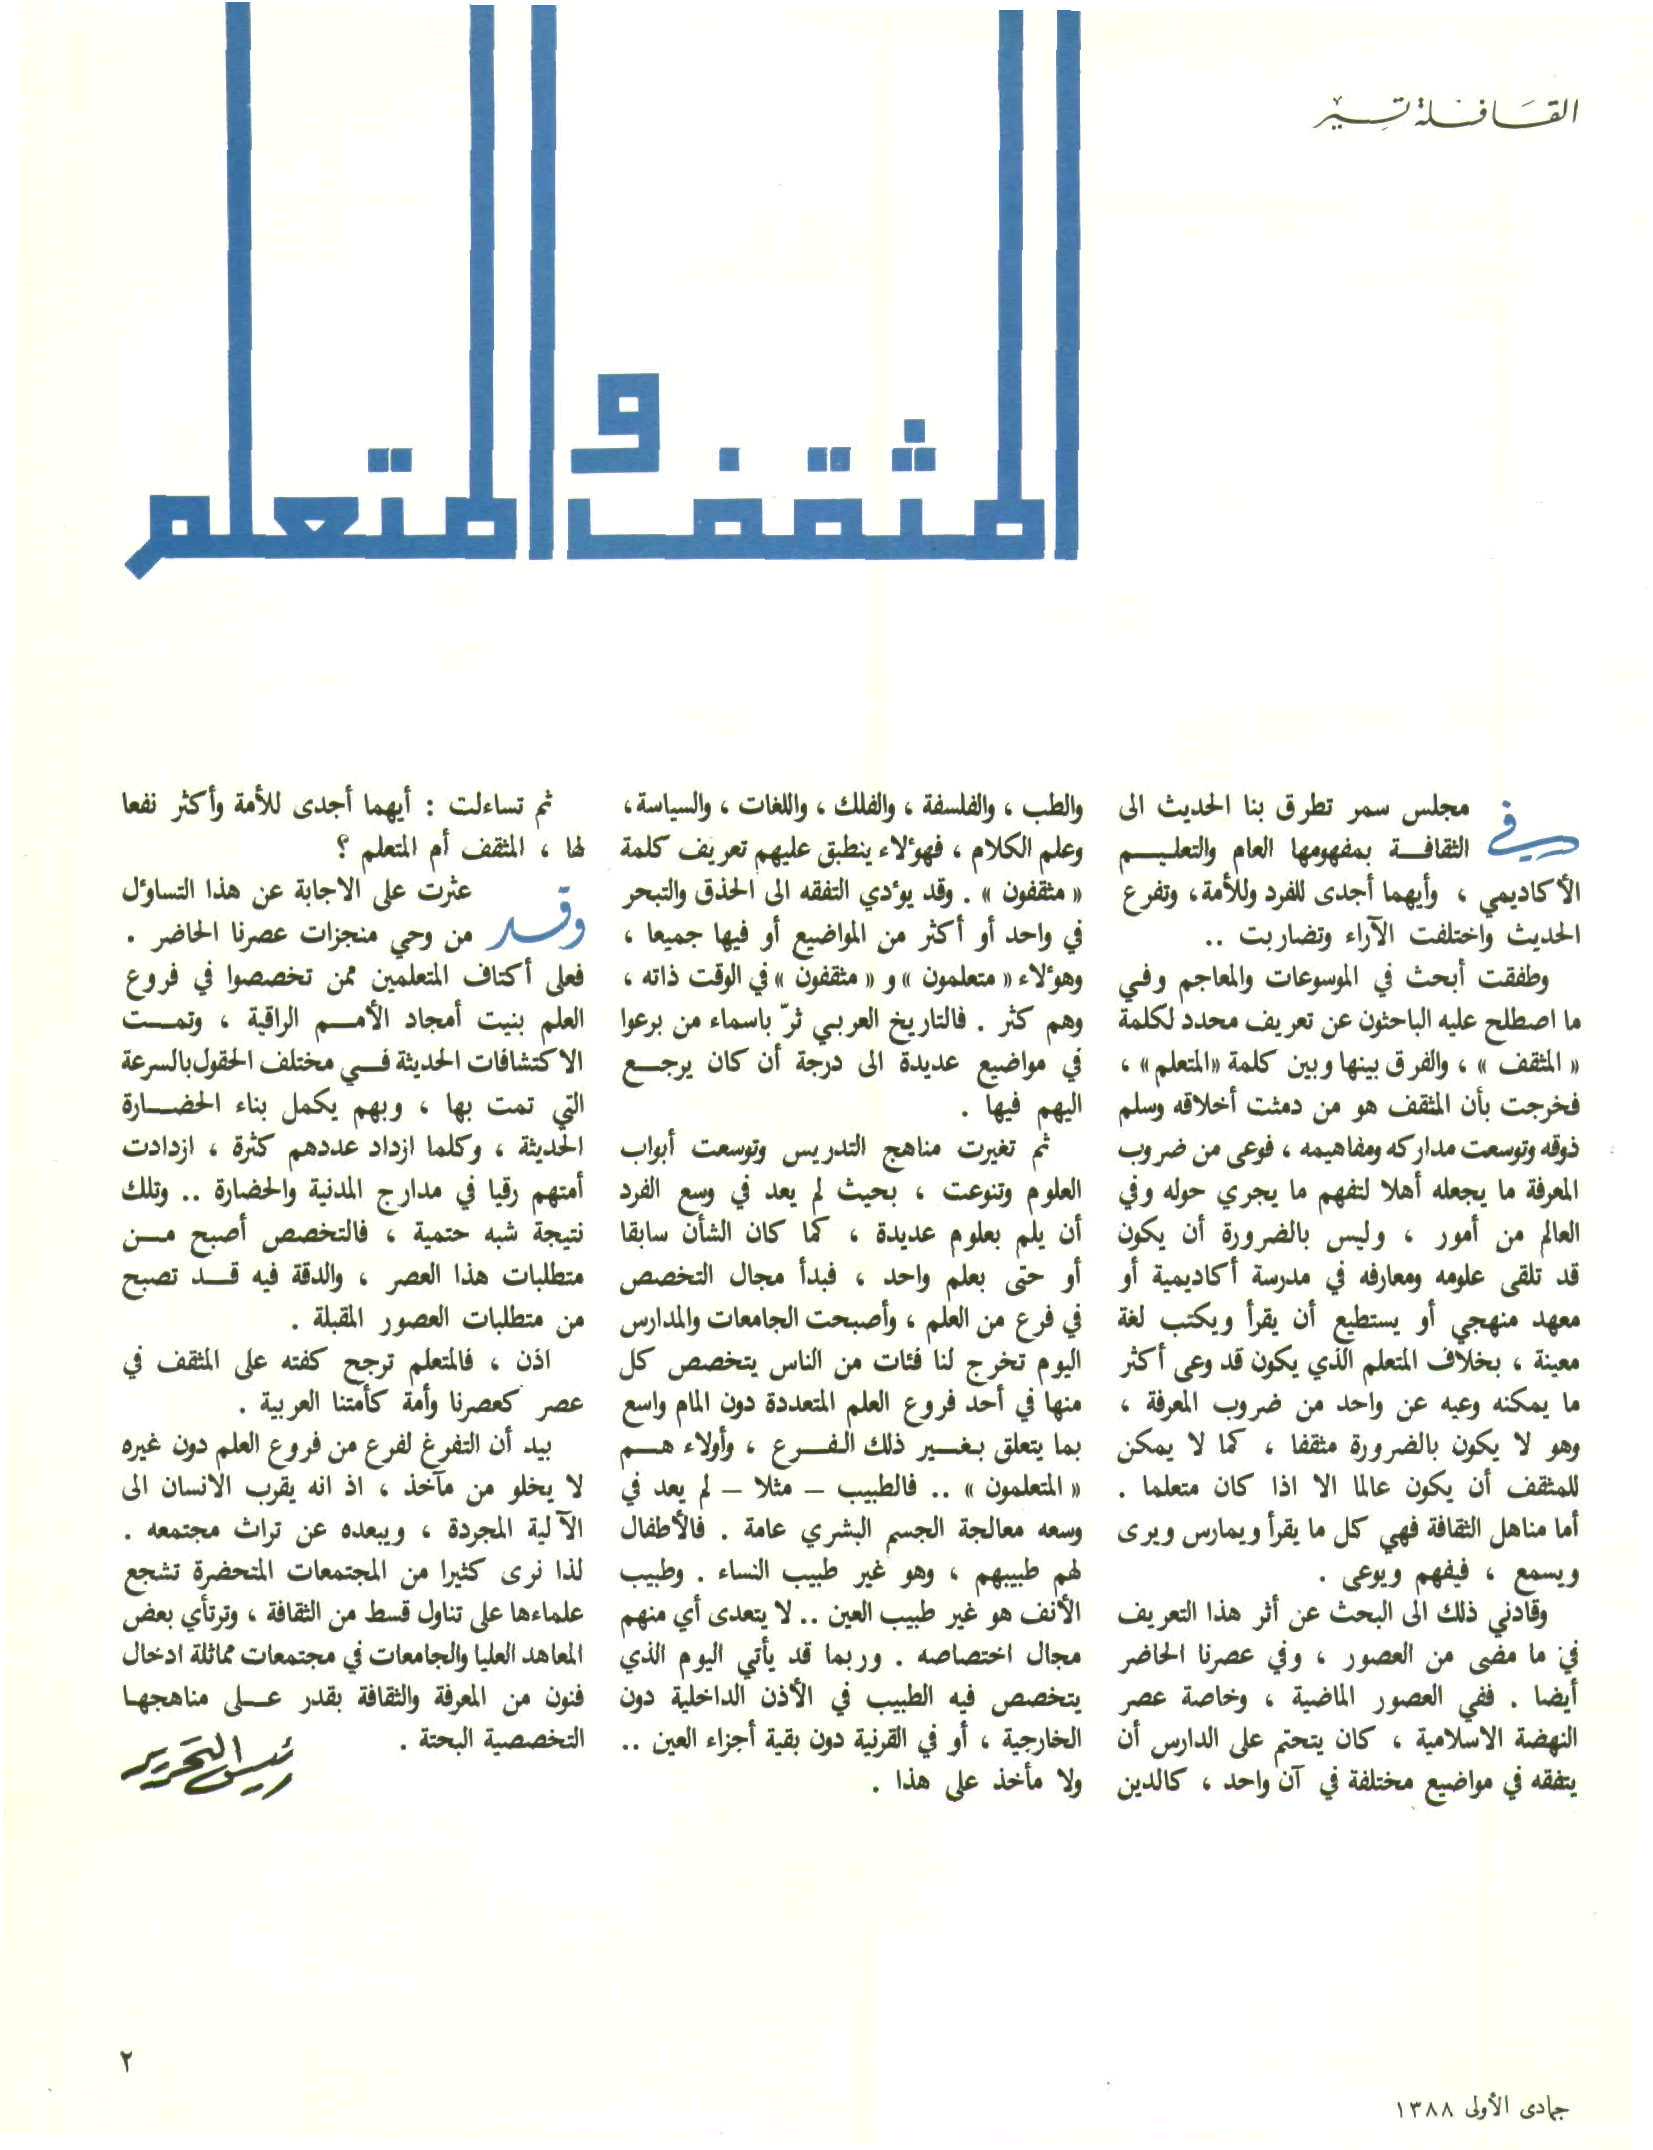 القافلة تسير
المثقف والمتعلم
في مجلس سمر تطرق بنا الحديث الى
الثقافة بمفهومها العام والتعليم
الأكاديمي ، وأيهما أجدى للفرد وللأمة ، وتفرع
الحديث واختلفت الآراء وتضاربت ..
وطفقت أبحث في الموسوعات والمعاجم وفي
ما اصطلح عليه الباحثون عن تعريف محدد لكلمة
« المثقف » ، والفرق بينها وبين كلمة «المتعلم» ،
فخرجت بأن المثقف هو من دمثت أخلاقه وسلم
ذوقه وتوسعت مداركه ومفاهيمه ، فوعى من ضروب
المعرفة ما يجعله أهلا لتفهم ما يجري حوله وفي
العالم من أمور ، وليس بالضرورة أن يكون
قد تلقى علومه ومعارفه في مدرسة أكاديمية أو
معهد منهجي أو يستطيع أن يقرأ ويكتب لغة
معينة ، بخلاف المتعلم الذي يكون قد وعى أكثر
ما يمكنه وعيه عن واحد من ضروب المعرفة ،
وهو لا يكون بالضرورة مثقفا ، كما لا يمكن
للمثقف أن يكون عالما الا اذا كان متعلما .
أما مناهل الثقافة فهي كل ما يقرأ ويمارس ويرى
ويسمع ، فيفهم ويوعى .
وقادني ذلك الى البحث عن أثر هذا التعريف
في ما مضى من العصور ، وفي عصرنا الحاضر
أيضا . ففي العصور الماضية ، وخاصة عصر
النهضة الاسلامية ، كان يتحتم على الدارس أن
يتفقه في مواضيع مختلفة في آن واحد ، كالدين
والطب ، والفلسفة ، والفلك ، واللغات ، والسياسة ،
وعلم الكلام ، فهؤلاء ينطبق عليهم تعريف كلمة
« مثقفون » . وقد يؤدي التفقه الى الحذق والتبحر
في واحد أو أكثر من المواضيع أو فيها جميعا ،
وهؤلاء « متعلمون » و « مثقفون » في الوقت ذاته ،
وهم كثر . فالتاريخ العربي ثرّ باسماء من برعوا
في مواضيع عديدة الى درجة أن كان يرجع
اليهم فيها .
ثم تغيرت مناهج التدريس وتوسعت أبواب
العلوم وتنوعت ، بحيث لم يعد في وسع الفرد
أن يلم بعلوم عديدة ، كما كان الشأن سابقا
أو حتى بعلم واحد ، فبدأ مجال التخصص
في فرع من العلم ، وأصبحت الجامعات والمدارس
اليوم تخرج لنا فئات من الناس يتخصص كل
منها في أحد فروع العلم المتعددة دون المام واسع
بما يتعلق بغير ذلك الفرع ، وأولاء هم
« المتعلمون » .. فالطبيب – مثلا – لم يعد في
وسعه معالجة الجسم البشري عامة . فالأطفال
لهم طبيبهم ، وهو غير طبيب النساء . وطبيب
الأنف هو غير طبيب العين .. لا يتعدى أي منهم
مجال اختصاصه . وربما قد يأتي اليوم الذي
يتخصص فيه الطبيب في الأذن الداخلية دون
الخارجية ، أو في القرنية دون بقية أجزاء العين ..
ولا مأخذ على هذا .
ثم تساءلت : أيهما أجدى للأمة وأكثر نفعا
لها ، المثقف أم المتعلم ؟
وقد عثرت على الاجابة عن هذا التساؤل
من وحي منجزات عصرنا الحاضر .
فعلى أكتاف المتعلمين ممن تخصصوا في فروع
العلم بنيت أمجاد الأمم الراقية ، وتمت
الاكتشافات الحديثة في مختلف الحقول بالسرعة
التي تمت بها ، وبهم يكمل بناء الحضارة
الحديثة ، وكلما ازداد عددهم كثرة ، ازدادت
أمتهم رقيا في مدارج المدنية والحضارة .. وتلك
نتيجة شبه حتمية ، فالتخصص أصبح من
متطلبات هذا العصر ، والدقة فيه قد تصبح
من متطلبات العصور المقبلة .
اذن ، فالمتعلم ترجح كفته على المثقف في
عصر كعصرنا وأمة كأمتنا العربية .
بيد أن التفرغ لفرع من فروع العلم دون غيره
لا يخلو من مآخذ ، اذ انه يقرب الانسان الى
الآلية المجردة ، ويبعده عن تراث مجتمعه .
لذا نرى كثيرا من المجتمعات المتحضرة تشجع
علماءها على تناول قسط من الثقافة ، وترتأي بعض
المعاهد العليا والجامعات في مجتمعات مماثلة ادخال
فنون من المعرفة والثقافة بقدر على مناهجها
التخصصية البحتة .
رئيس التحرير
٢
جمادى الأولى ١٣٨٨